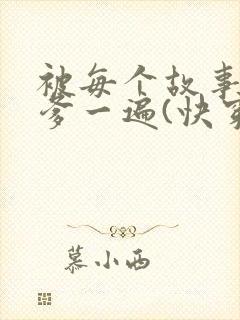 被每个故事
爹一遍(快穿
慕小西